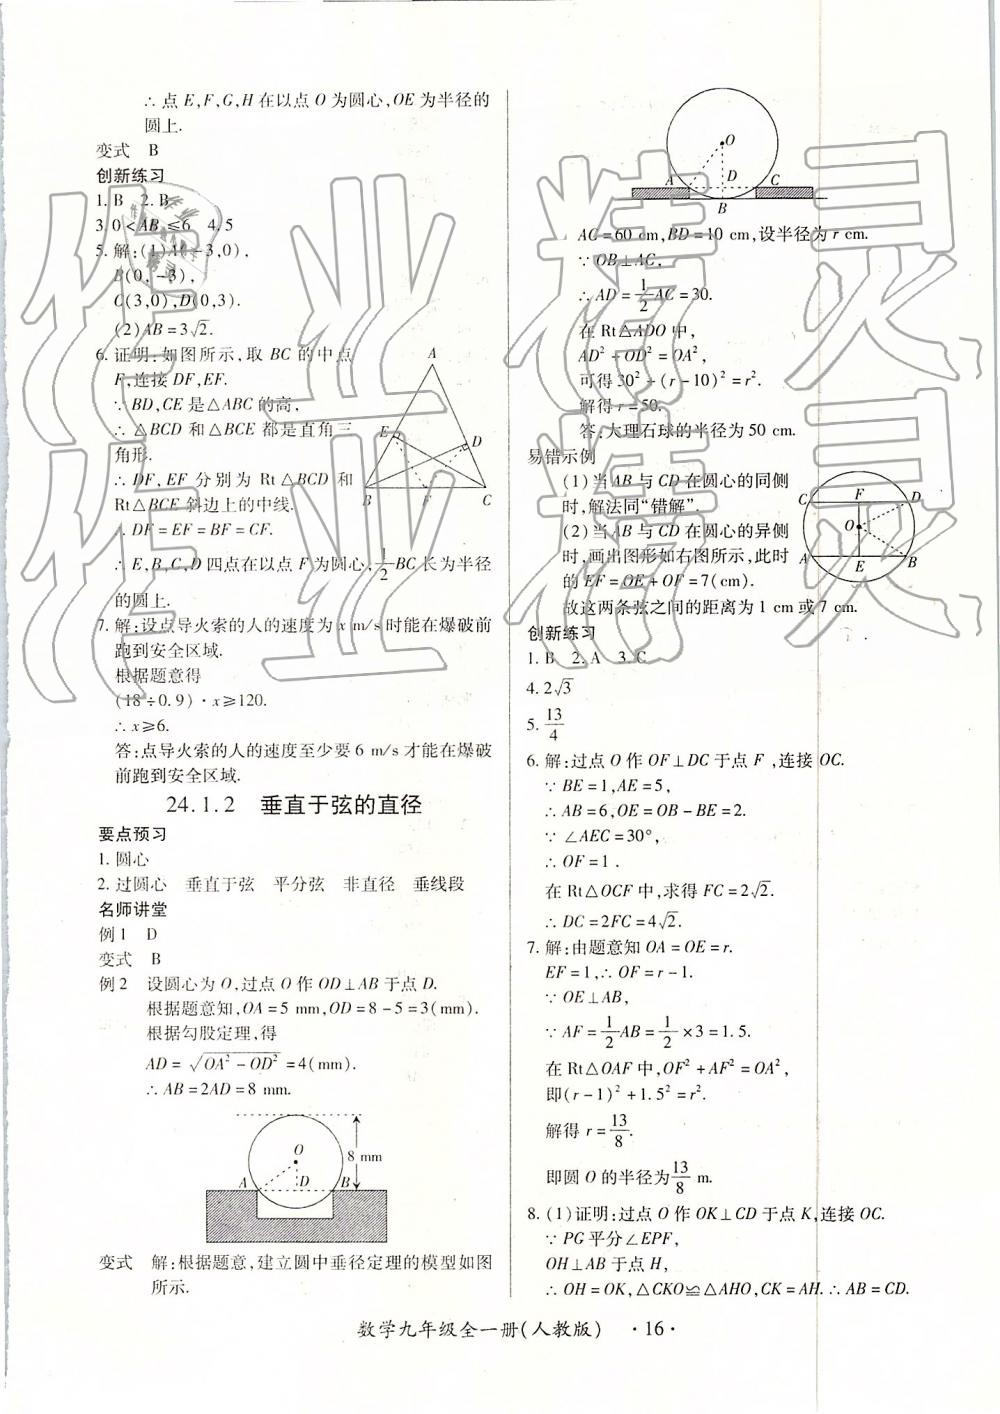 ∴点 E,F,G,H 在以点 O 为圆心,OE 为半径的
圆上.
变式 B
创新练习
1. B 2. B
3. 0<AB≤6 4. 5
5. 解:(1)A(-3,0),
B(0,-3),
C(3,0),D(0,3).
(2)AB=3√2.
6. 证明:如图所示,取 BC 的中点
F,连接 DF,EF.
∵BD,CE 是△ABC 的高,
∴△BCD 和△BCE 都是直角三
角形.
∴DF,EF 分别为 Rt△BCD 和
Rt△BCE 斜边上的中线.
∴DF=EF=BF=CF.
∴E,B,C,D 四点在以点 F 为圆心,1/2 BC 长为半径
的圆上.
A
E
D
B
F
C
7. 解:设点导火索的人的速度为 x m/s 时能在爆破前
跑到安全区域.
根据题意得
(18÷0.9)·x≥120.
∴x≥6.
答:点导火索的人的速度至少要 6 m/s 才能在爆破
前跑到安全区域.
24.1.2 垂直于弦的直径
要点预习
1. 圆心
2. 过圆心 垂直于弦 平分弦 非直径 垂线段
名师讲堂
例1 D
变式 B
例2 设圆心为 O,过点 O 作 OD⊥AB 于点 D.
根据题意知,OA=5 mm,OD=8-5=3(mm).
根据勾股定理,得
AD=√(OA²-OD²)=4(mm).
∴AB=2AD=8 mm.
O
8 mm
A
D
B
变式 解:根据题意,建立圆中垂径定理的模型如图
所示.
O
A
D
C
B
AC=60 cm,BD=10 cm,设半径为 r cm.
∵OB⊥AC,
∴AD=1/2 AC=30.
在 Rt△ADO 中,
AD²+OD²=OA²,
可得 30²+(r-10)²=r².
解得 r=50.
答:大理石球的半径为 50 cm.
易错示例
(1)当 AB 与 CD 在圆心的同侧
时,解法同“错解”.
(2)当 AB 与 CD 在圆心的异侧
时,画出图形如右图所示,此时
的 EF=OE+OF=7(cm).
故这两条弦之间的距离为 1 cm 或 7 cm.
C
F
D
O
A
E
B
创新练习
1. B 2. A 3. C
4. 2√3
5. 13/4
6. 解:过点 O 作 OF⊥DC 于点 F,连接 OC.
∵BE=1,AE=5,
∴AB=6,OE=OB-BE=2.
∵∠AEC=30°,
∴OF=1.
在 Rt△OCF 中,求得 FC=2√2.
∴DC=2FC=4√2.
7. 解:由题意知 OA=OE=r.
EF=1,∴OF=r-1.
∵OE⊥AB,
∴AF=1/2 AB=1/2×3=1.5.
在 Rt△OAF 中,OF²+AF²=OA²,
即(r-1)²+1.5²=r².
解得 r=13/8.
即圆 O 的半径为 13/8 m.
8. (1)证明:过点 O 作 OK⊥CD 于点 K,连接 OC.
∵PG 平分∠EPF,
OH⊥AB 于点 H,
∴OH=OK,△CKO≌△AHO,CK=AH.∴AB=CD.
数学九年级全一册(人教版) ·16·
作业精灵
作业精灵